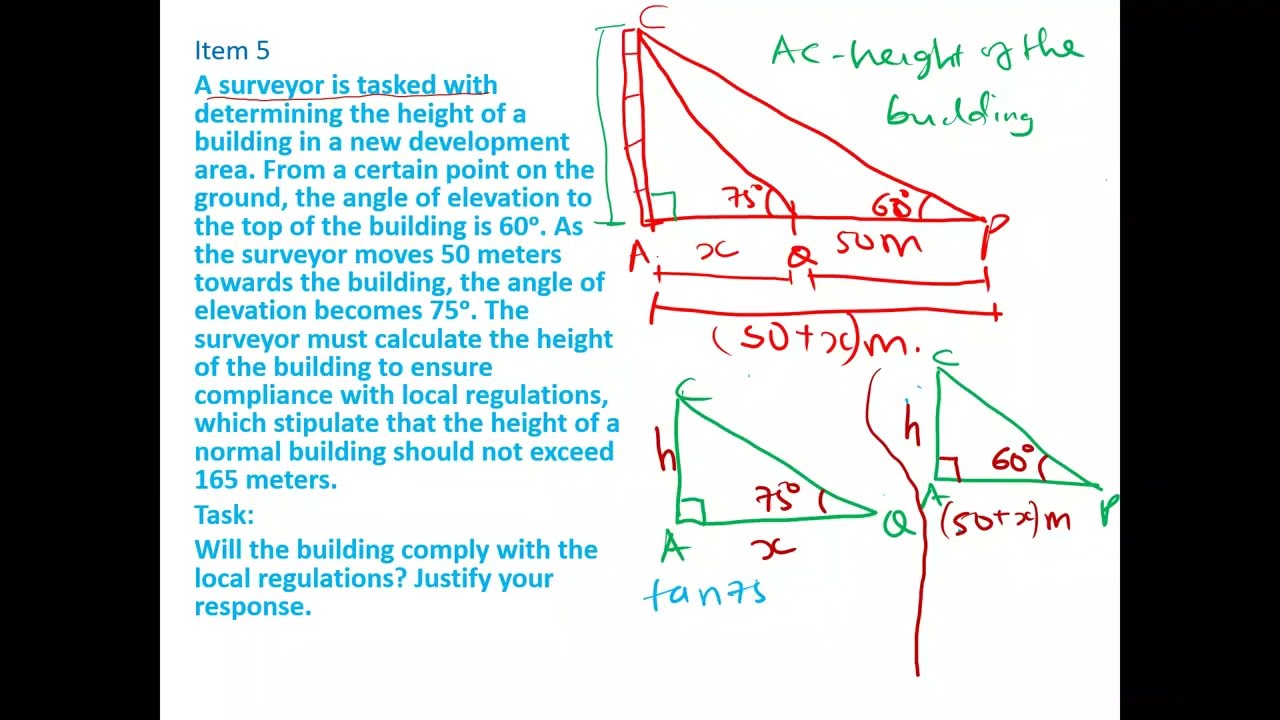 Item 5
A surveyor is tasked with
determining the height of a
building in a new development
area. From a certain point on the
ground, the angle of elevation to
the top of the building is 60°. As
the surveyor moves 50 meters
towards the building, the angle of
elevation becomes 75°. The
surveyor must calculate the height
of the building to ensure
compliance with local regulations,
which stipulate that the height of a
normal building should not exceed
165 meters.
Task:
Will the building comply with the
local regulations? Justify your
response.
C
AC-height of the
building
75° 60°
A x Q 50m P
(50+x)m.
C
h
75°
A x Q
tan75
C
h
60°
A (50+x)m P